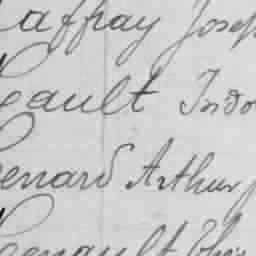 affray Josep
eault Isido
enard Arthur
enault